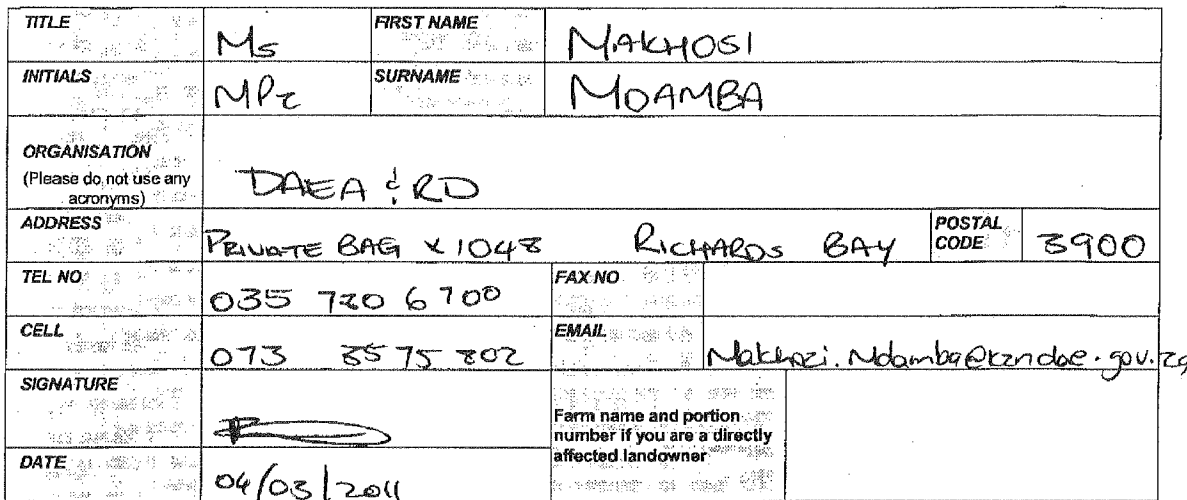 TITLE Ms FIRST NAME MAKHOSI
INITIALS MPZ SURNAME MDAMBA
ORGANISATION
(Please do not use any
acronyms) DAEA & RD
ADDRESS PRIVATE BAG X1048 RICHARDS BAY POSTAL
CODE 3900
TEL NO 035 780 6700 FAX NO
CELL 073 EMAIL
SIGNATURE
Farm name and portion
number if you are a directly
affected landowner
DATE 04/03/2011